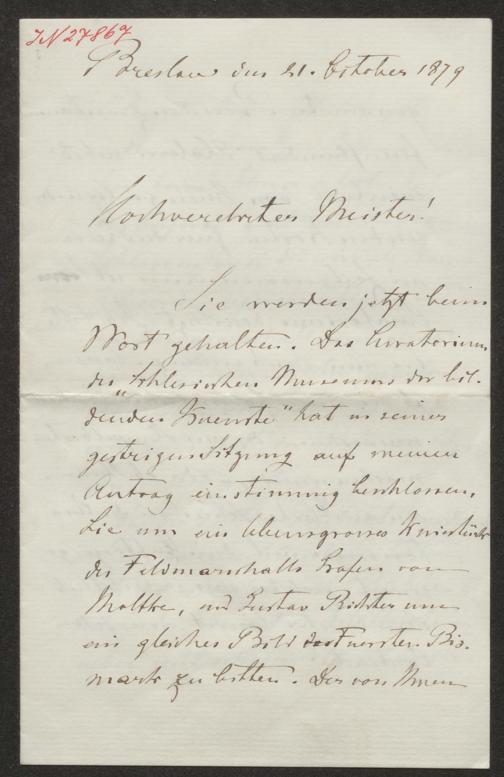 IN 27867
Breslau den 21. October 1879
Hochverehrter Meister!
Sie werden jetzt beim
Wort gehalten. Das Curatorium
des „Schlesischen Museums der bil-
denden Kuenste" hat in seiner
gestrigen Sitzung auf meinen
Antrag einstimmig beschlossen,
Sie um ein lebensgrosses Kniestück
des Feldmarschalls Grafen von
Moltke, und Gustav Richter um
ein gleiches Bild des Fuersten Bis-
mark zu bitten. Der von Ihnen